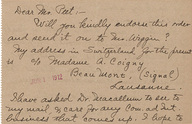 Dear Mr. Peet —
Will you kindly endorse this order
and send it on to Mr. Wiggin?
My address in Switzerland for the present
is c/o Madame A. Coigny
Beau Mont, (Signal)
Lausanne.
I have asked Dr. Maccallum to see to
my mail & care for any Com. ad int.
business that comes up. I hope to